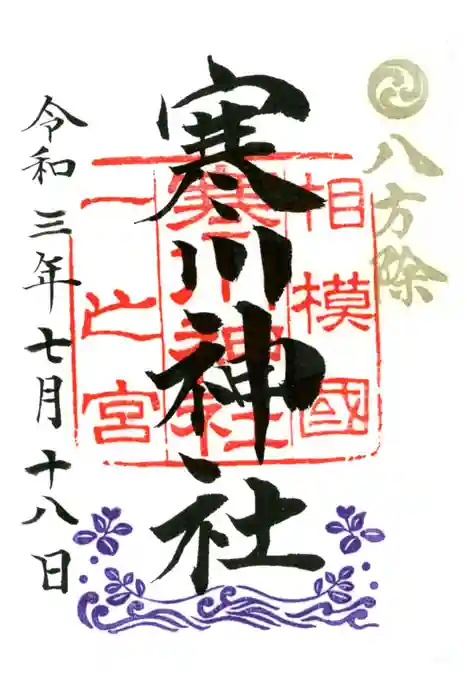 八方除
寒川神社
相模國
寒川神社
一之宮
令和三年七月十八日